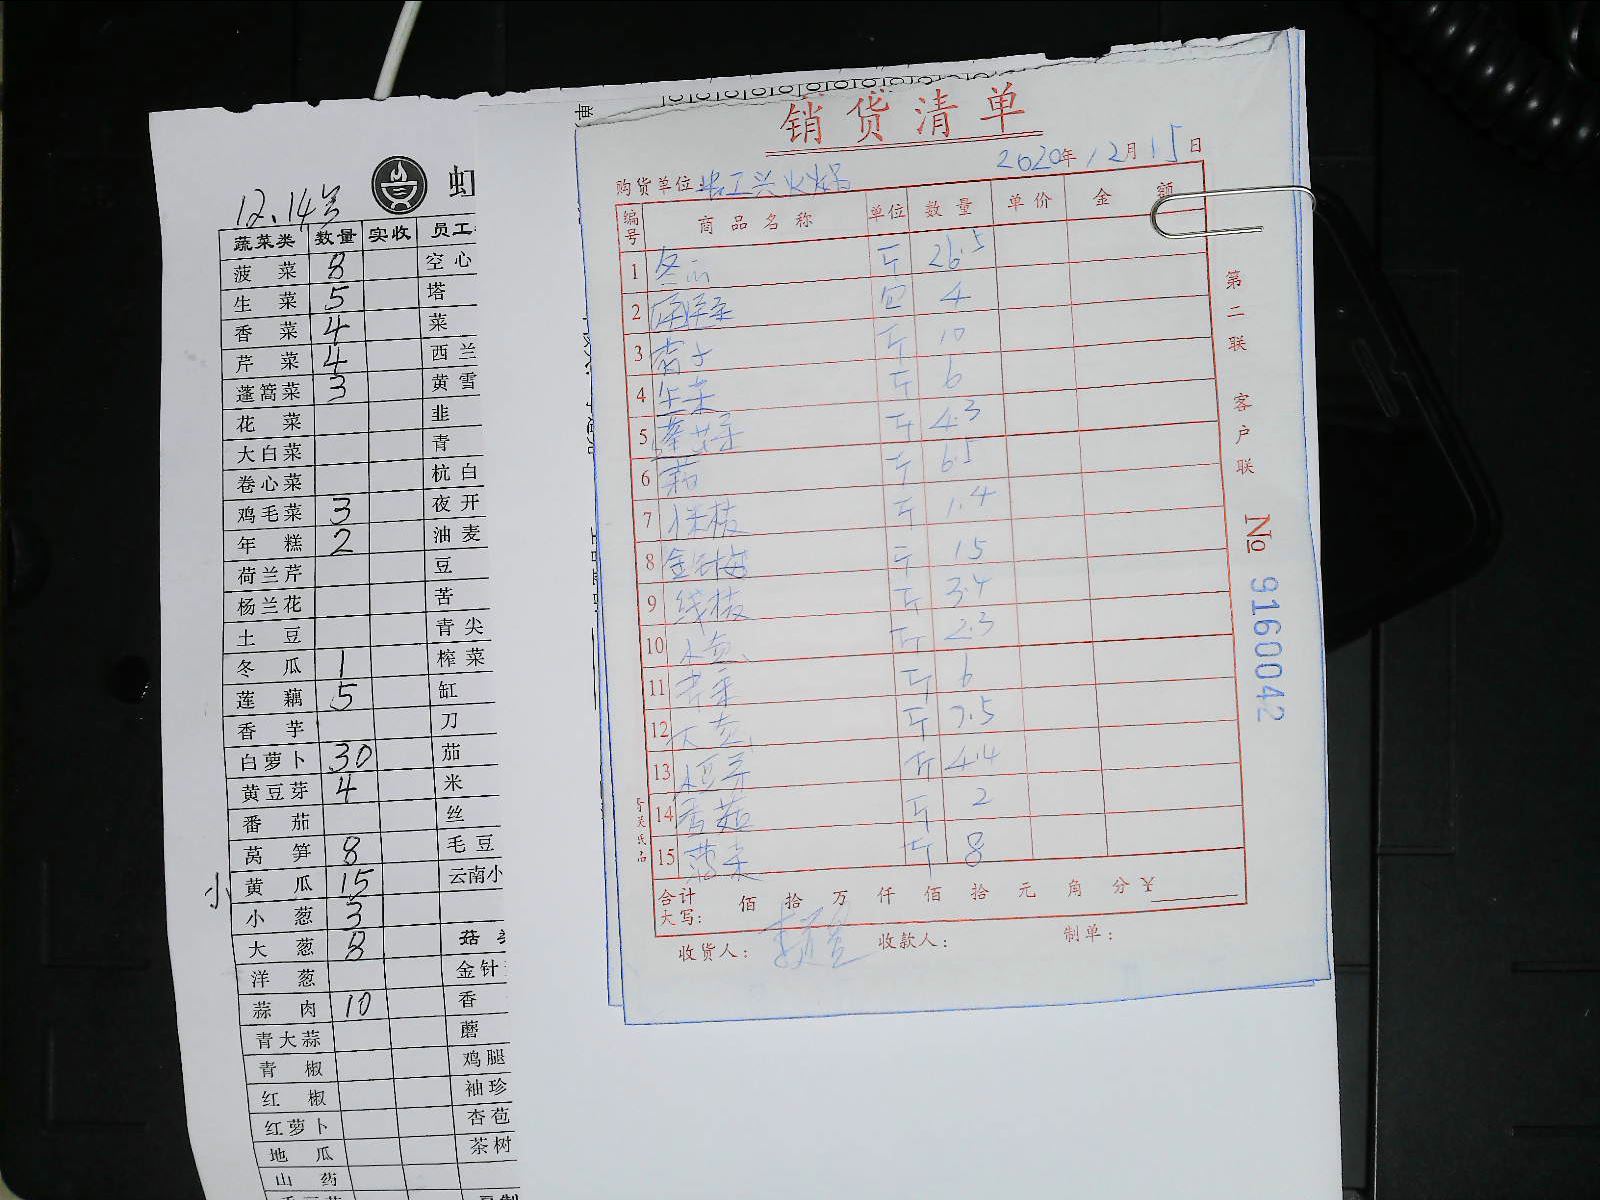 12.14号
虹
蔬菜类 数量 实收 员工
菠菜 8 空心
生菜 5 塔
香菜 4 菜
芹菜 4 西兰
蓬蒿菜 3 黄雪
花菜 韭
大白菜 青
卷心菜 杭白
鸡毛菜 3 夜开
年糕 2 油麦
荷兰芹 豆
杨兰花 苦
土豆 青尖
冬瓜 1 榨菜
莲藕 5 缸
香芋 刀
白萝卜 30 茄
黄豆芽 4 米
番茄 丝
莴笋 8 毛豆
小 黄瓜 15 云南小
小葱 3
大葱 8 菇
洋葱 金针
蒜肉 10 香
青大蒜 蘑
青椒 鸡腿
红椒 袖珍
红萝卜 杏苞
地瓜 茶树
山药
单
销货清单
2020年12月15日
购货单位
编号 商品名称 单位 数量 单价 金额
1 冬瓜 斤 26.5
2 包 4
3 斤 10
4 生菜 斤 6
5 斤 4.3
6 斤 6.5
7 斤 1.4
8 金针菇 斤 15
9 线椒 斤 3.4
10 小葱 斤 2.3
11 芹菜 斤 6
12 大葱 斤 7.5
13 斤 4.4
14 香菇 斤 2
15 菠菜 斤 8
合计大写: 佰 拾 万 仟 佰 拾 元 角 分 ¥
收货人: 收款人: 制单:
第二联 客户联
No 9160042